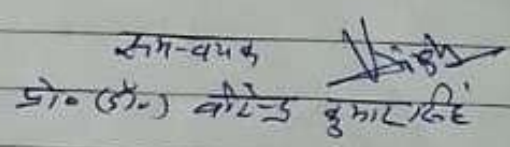 समन्वयक
प्रो० (डॉ०) वीरेन्द्र कुमार सिंह